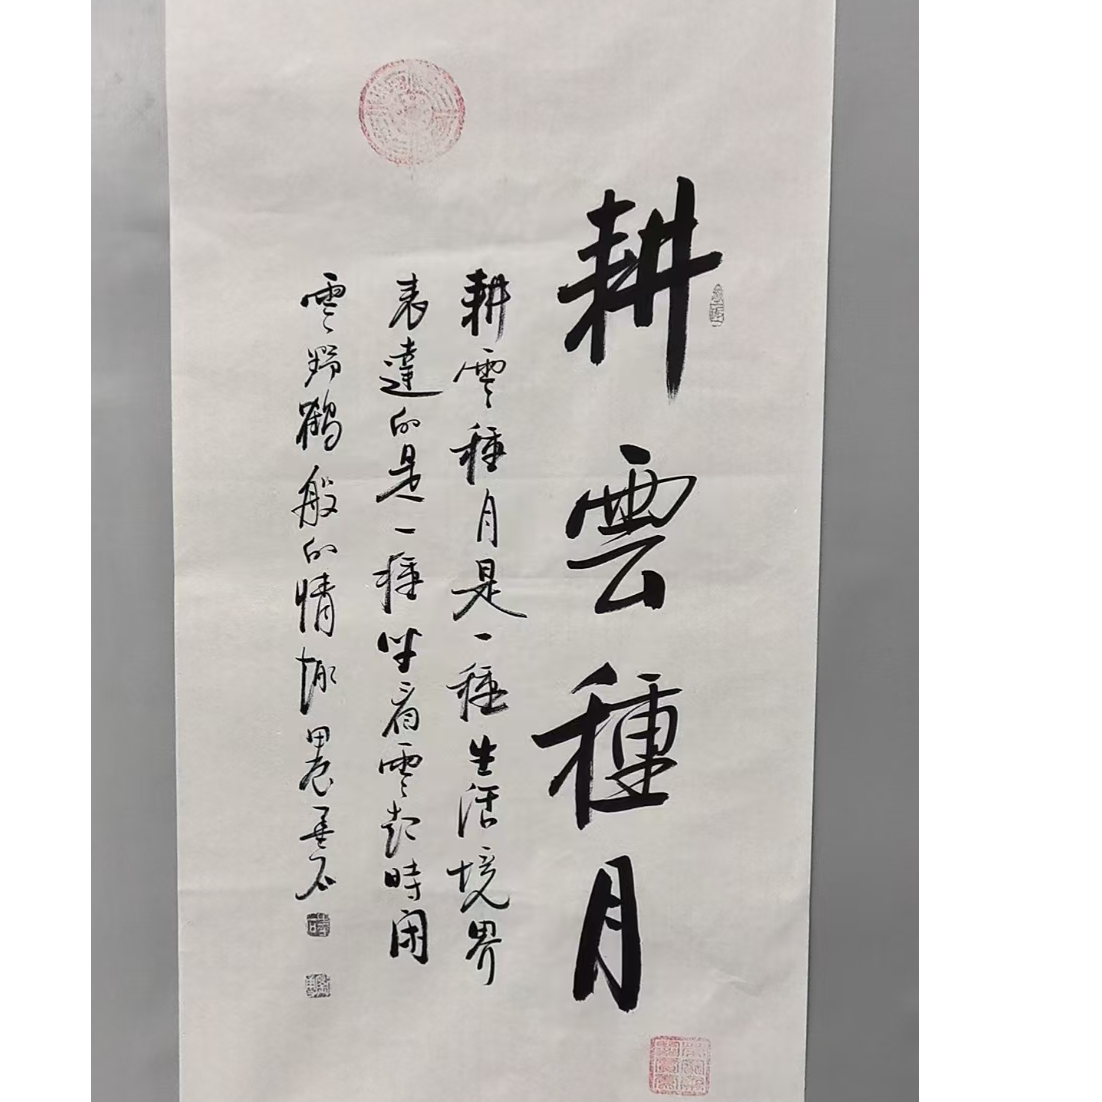 耕雲種月
耕雲種月是一種生活境界
表達的是一種坐看雲起時闲
雲野鶴般的情趣